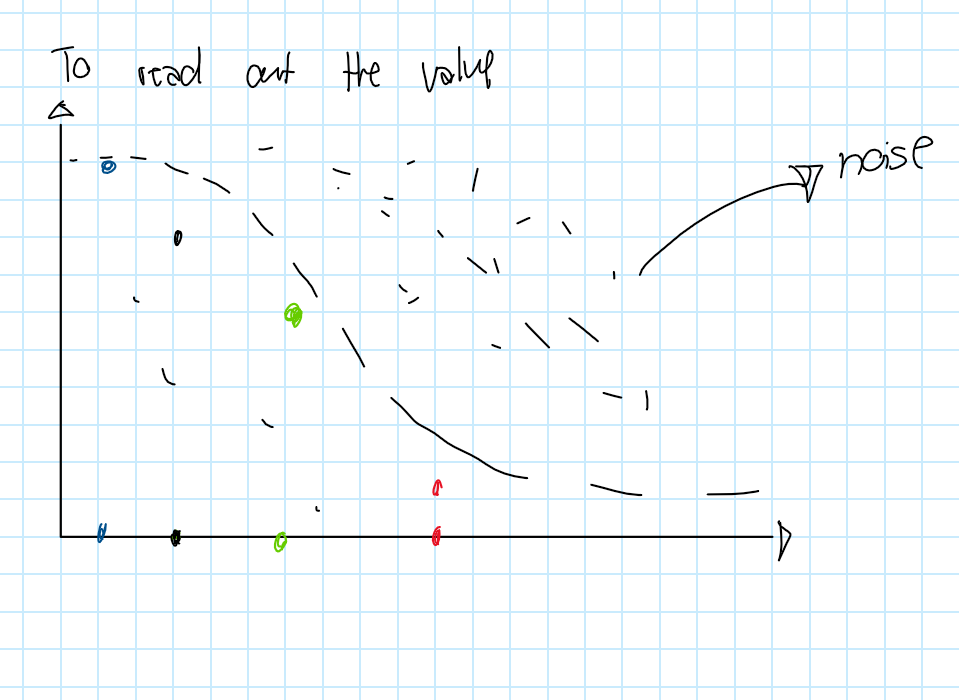 To read out the value
noise